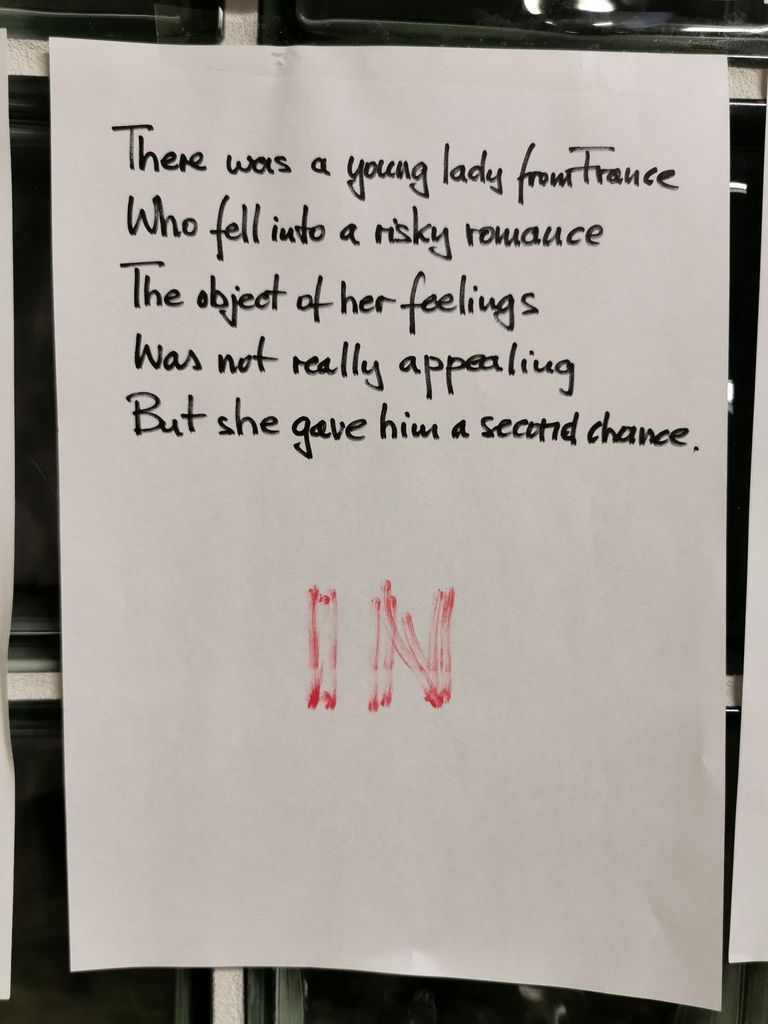 There was a young lady from France
Who fell into a risky romance
The object of her feelings
Was not really appealing
But she gave him a second chance.
IN